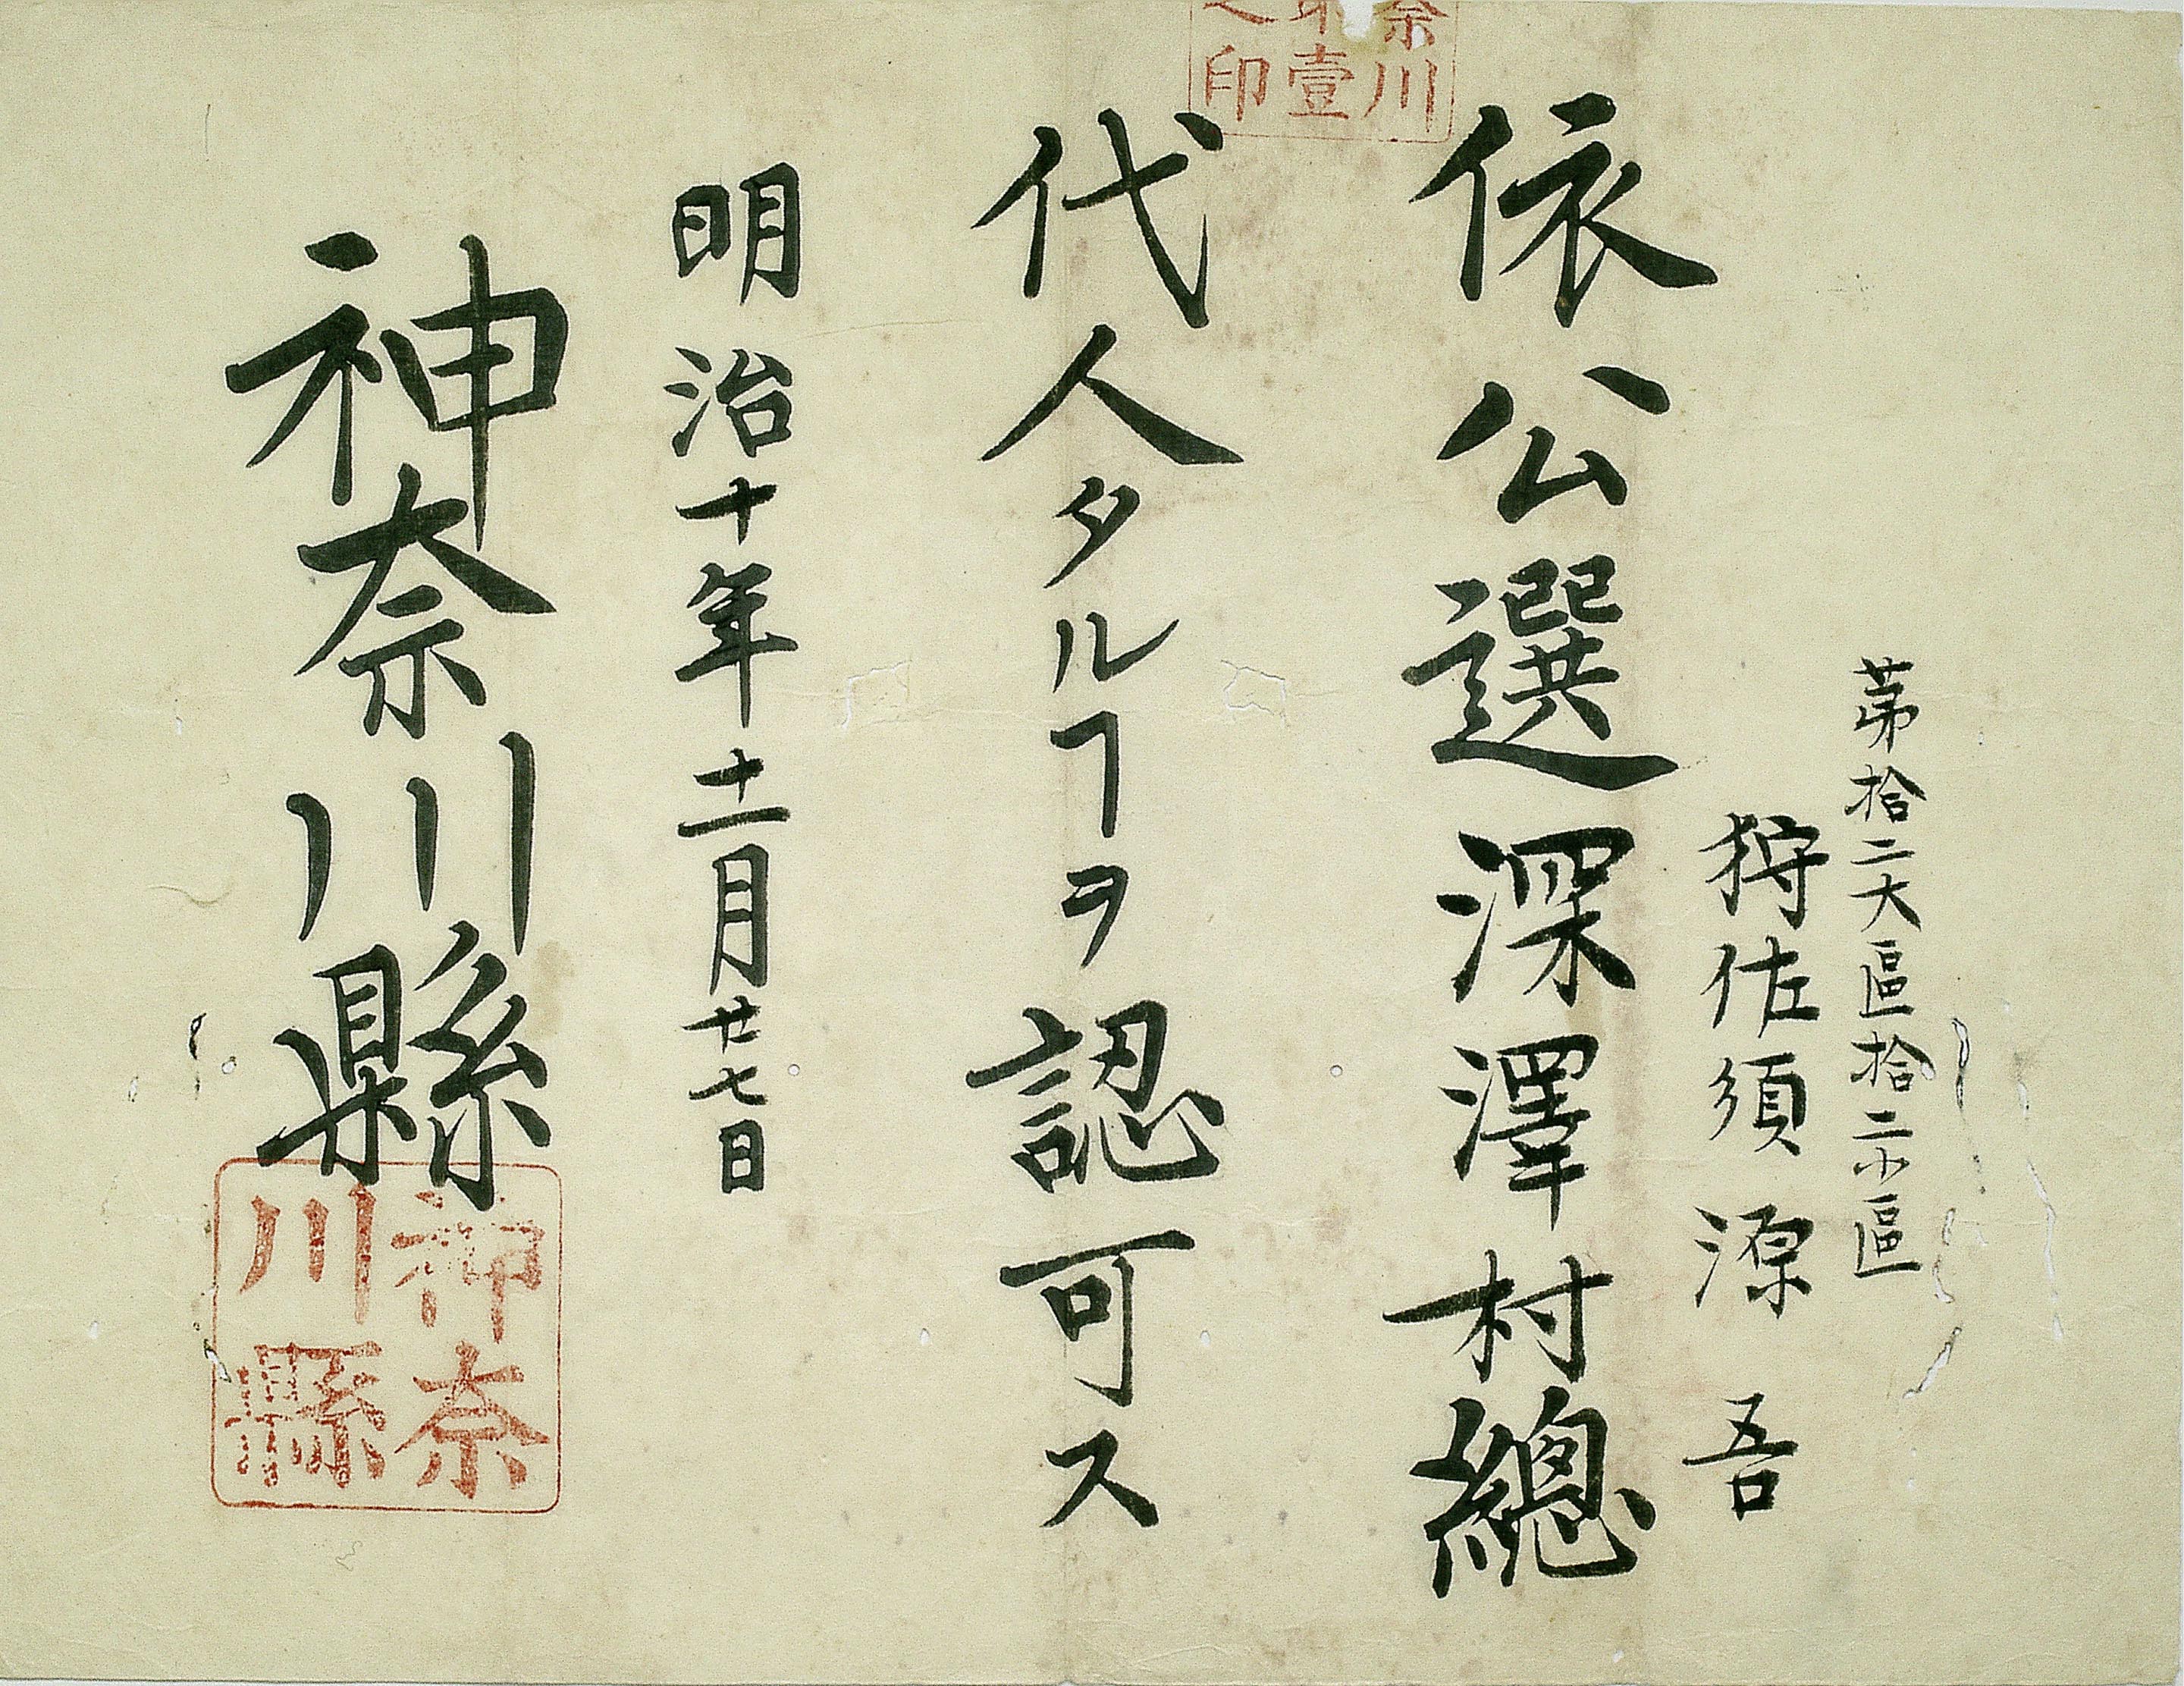 奈川
壹
印
苐拾二大區拾二小區
狩佐須源吾
依公選深澤村總
代人タルヿヲ認可ス
明治十年十二月廿七日
神奈川縣
神奈
川縣